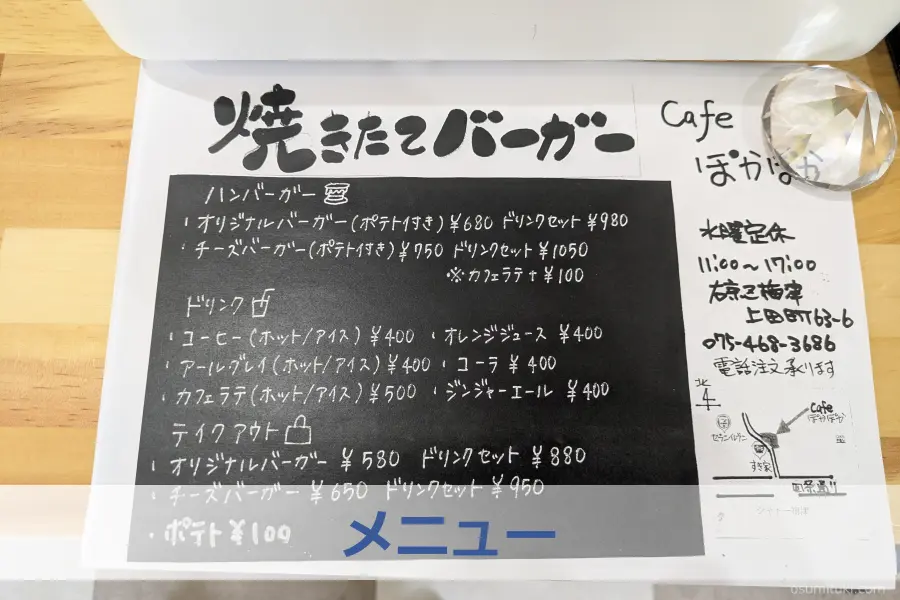 焼きたてバーガー
ハンバーガー
・オリジナルバーガー(ポテト付き)¥680 ドリンクセット ¥980
・チーズバーガー(ポテト付き)¥750 ドリンクセット ¥1050
※カフェラテ+¥100
ドリンク
・コーヒー(ホット/アイス)¥400 ・オレンジジュース ¥400
・アールグレイ(ホット/アイス)¥400 ・コーラ ¥400
・カフェラテ(ホット/アイス)¥500 ・ジンジャーエール ¥400
テイクアウト
・オリジナルバーガー ¥580 ドリンクセット ¥880
・チーズバーガー ¥650 ドリンクセット ¥950
・ポテト ¥100
Cafe
ぽかぽか
水曜定休
11:00〜17:00
右京区梅津
上田町63-6
075-468-3686
電話注文承ります
北
Cafe
ぽかぽか
セブンイレブン
すき家
四条通り
メニュー